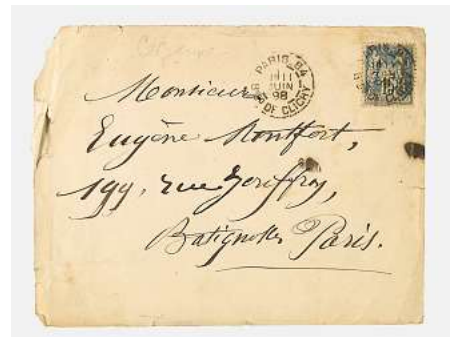 PARIS 84
JUIN
98
BD DE CLICHY
Monsieur
Eugène Montfort,
199, rue
Batignolles Paris.